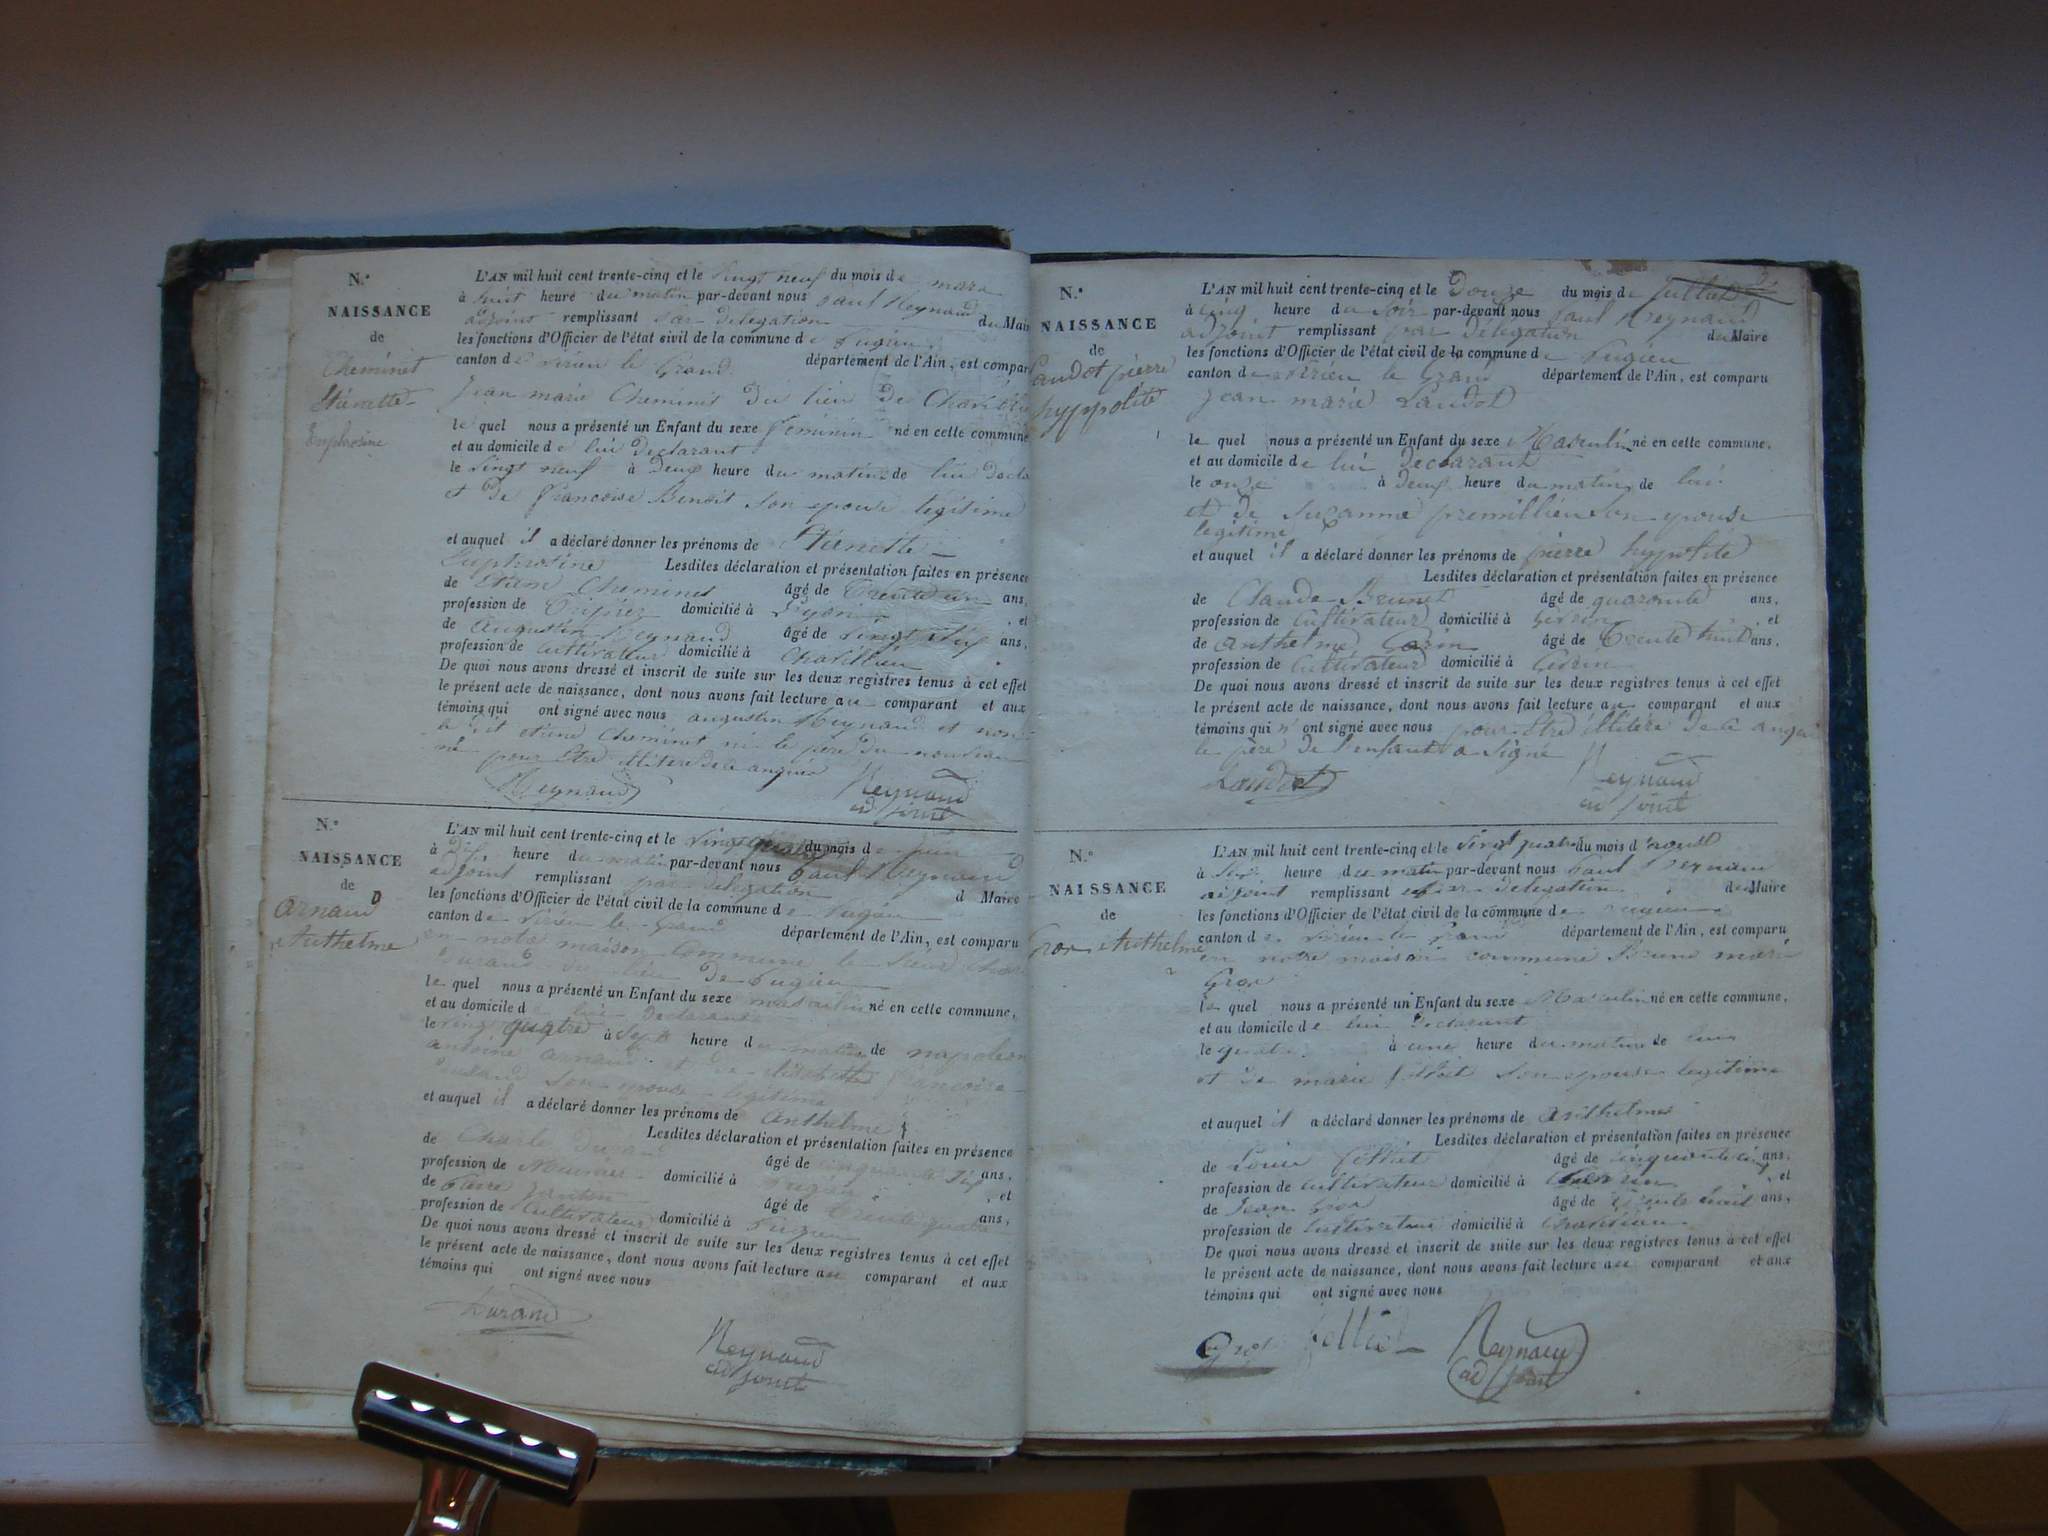 N.°
NAISSANCE
de
Cheminet
Etienette
Euphrosine
L'AN mil huit cent trente-cinq et le vingt neuf du mois de mars
à huit heure du matin par-devant nous paul Reynaud
adjoint remplissant par delegation du Maire
les fonctions d'Officier de l'état civil de la commune de Pugieu
canton de virieu le Grand département de l'Ain, est comparu
Jean marie Cheminet du lieu de
le quel nous a présenté un Enfant du sexe feminin né en cette commune
et au domicile de lui declarant
le vingt neuf à deux heure du matin de lui
et de francoise Benoit son epouse legitime
et auquel il a déclaré donner les prénoms de Etienette
Euphrosine Lesdites déclaration et présentation faites en présence
de Etiene Cheminet âgé de trente un ans,
profession de domicilié à Lyon et
de augustin Reynaud âgé de vingt ans,
profession de cultivateur domicilié à
De quoi nous avons dressé et inscrit de suite sur les deux registres tenus à cet effet
le présent acte de naissance, dont nous avons fait lecture au comparant et aux
témoins qui ont signé avec nous augustin Reynaud et non
etiene Cheminet ni le pere du nouveau
né pour etre illitere de ce enquis
Reynaud Reynaud
adjoint
N.°
NAISSANCE
de
arnaud
Anthelme
L'AN mil huit cent trente-cinq et le vingt quatre du mois de juin
à dix heure du matin par-devant nous paul Reynaud
adjoint remplissant par delegation d Maire
les fonctions d'Officier de l'état civil de la commune de Pugieu
canton de virieu le Grand département de l'Ain, est comparu
en notre maison commune le sieur
durand du lieu de Pugieu
le quel nous a présenté un Enfant du sexe masculin né en cette commune,
et au domicile de lui declarant
le vingt quatre à sept heure du matin de napoleon
antoine arnaud et de francoise
durand son epouse legitime
et auquel il a déclaré donner les prénoms de anthelme
Lesdites déclaration et présentation faites en présence
de Charle Durand âgé de cinquante ans,
profession de Meunier domicilié à Pugieu et
de âgé de trente quatre ans,
profession de cultivateur domicilié à Pugieu
De quoi nous avons dressé et inscrit de suite sur les deux registres tenus à cet effet
le présent acte de naissance, dont nous avons fait lecture au comparant et aux
témoins qui ont signé avec nous
Durand
Reynaud
adjoint
N.°
NAISSANCE
de
Landot pierre
hyppolite
L'AN mil huit cent trente-cinq et le Douze du mois de juillet
à cinq heure du soir par-devant nous paul Reynaud
adjoint remplissant par délégation du Maire
les fonctions d'Officier de l'état civil de la commune de Pugieu
canton de virieu le Grand département de l'Ain, est comparu
Jean marie Landot
le quel nous a présenté un Enfant du sexe Masculin né en cette commune,
et au domicile de lui declarant
le onze à deux heure du matin de lui
et de Suzanne premillieu son epouse
legitime
et auquel il a déclaré donner les prénoms de pierre hypolite
Lesdites déclaration et présentation faites en présence
de Claude Brunet âgé de quarante ans,
profession de Cultivateur domicilié à et
de anthelme âgé de trente huit ans,
profession de Cultivateur domicilié à
De quoi nous avons dressé et inscrit de suite sur les deux registres tenus à cet effet
le présent acte de naissance, dont nous avons fait lecture au comparant et aux
témoins qui n' ont signé avec nous pour etre illitere de ce enquis
le père de l'enfant a signé
Landot Reynaud
adjoint
N.°
NAISSANCE
de
Gros Anthelme
L'AN mil huit cent trente-cinq et le vingt quatre du mois d'aoust
à six heure du matin par-devant nous paul Reynaud
adjoint remplissant par delegation du Maire
les fonctions d'Officier de l'état civil de la commune de Pugieu
canton de virieu le Grand département de l'Ain, est comparu
en notre maison commune Bruno marie
Gros
le quel nous a présenté un Enfant du sexe Masculin né en cette commune,
et au domicile de lui declarant
le à une heure du matin de lui
et de marie son epouse legitime
et auquel il a déclaré donner les prénoms de anthelme
Lesdites déclaration et présentation faites en présence
de Louis âgé de cinquante cinq ans,
profession de cultivateur domicilié à et
de Jean Gros âgé de trente huit ans,
profession de cultivateur domicilié à
De quoi nous avons dressé et inscrit de suite sur les deux registres tenus à cet effet
le présent acte de naissance, dont nous avons fait lecture au comparant et aux
témoins qui ont signé avec nous
Gros Reynaud
adjoint